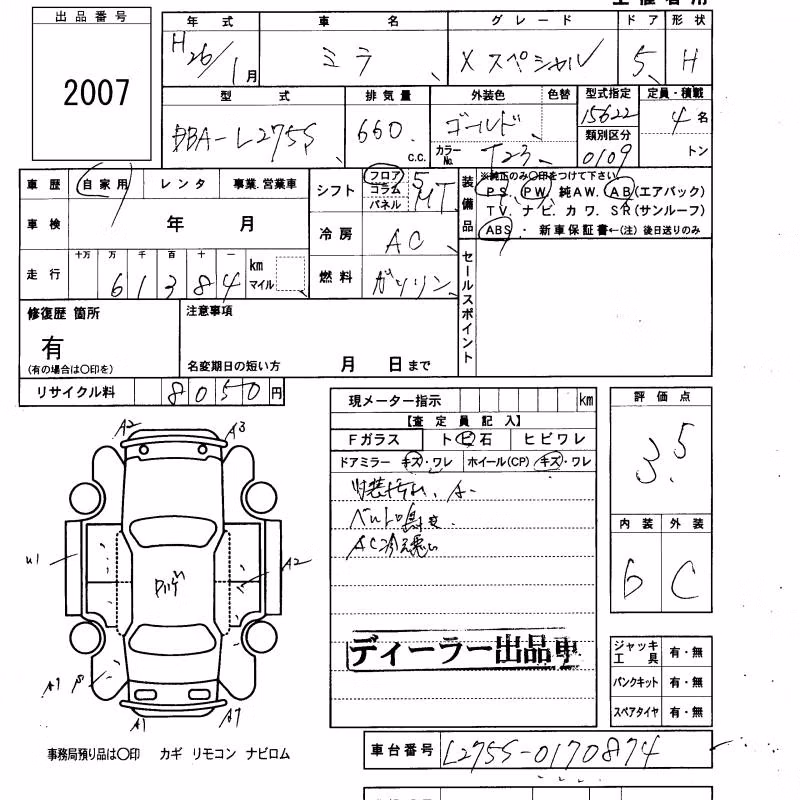 出品番号
2007
年式 車名 グレード ドア 形状
H26/1月 ミラ Xスペシャル 5 H
型式 排気量 外装色 色替 型式指定 定員・積載
DBA-L275S 660 c.c. ゴールド 15622 4名
カラーNo. T23 類別区分 0109 トン
車歴 自家用 レンタ 事業.営業車
シフト フロア コラム パネル 5 MT
装備品 ※純正のみ〇印をつけて下さい
PS. PW. 純AW. AB(エアバック)
TV. ナビ. カワ. SR(サンルーフ)
ABS ・ 新車保証書←(注) 後日送りのみ
車検 年 月
冷房 AC
走行 十万 万 千 百 十 一
61384 km マイル
燃料 ガソリン
セールスポイント
修復歴 箇所
有
(有の場合は〇印を)
注意事項
名変期日の短い方 月 日まで
リサイクル料 8050円
現メーター指示 km
【査定員記入】
Fガラス トビ石 ヒビワレ
ドアミラー キズ・ワレ ホイール(CP) キズ・ワレ
AC冷え悪い
ディーラー出品車
評価点
3.5
内装 外装
C
ジャッキ工具 有・無
パンクキット 有・無
スペアタイヤ 有・無
A2 A3
U1 A2
A1 A7
事務局預り品は〇印 カギ リモコン ナビロム
車台番号 L275S-0170874